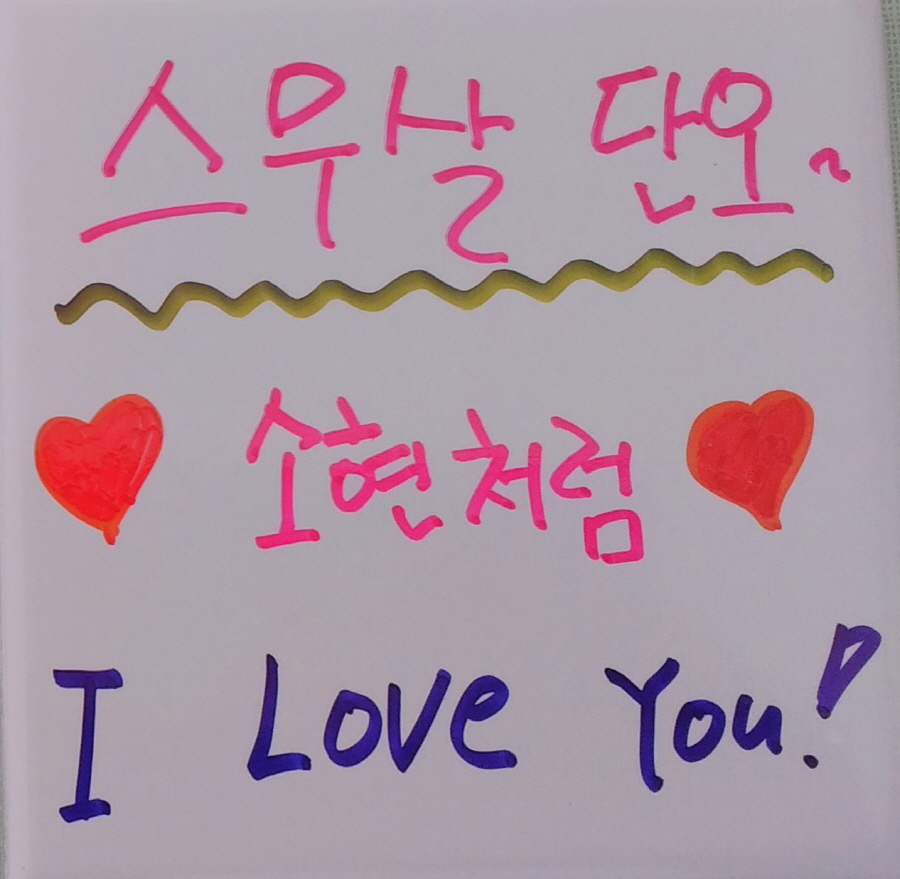 스무살 단오~
소현처럼
I Love You!